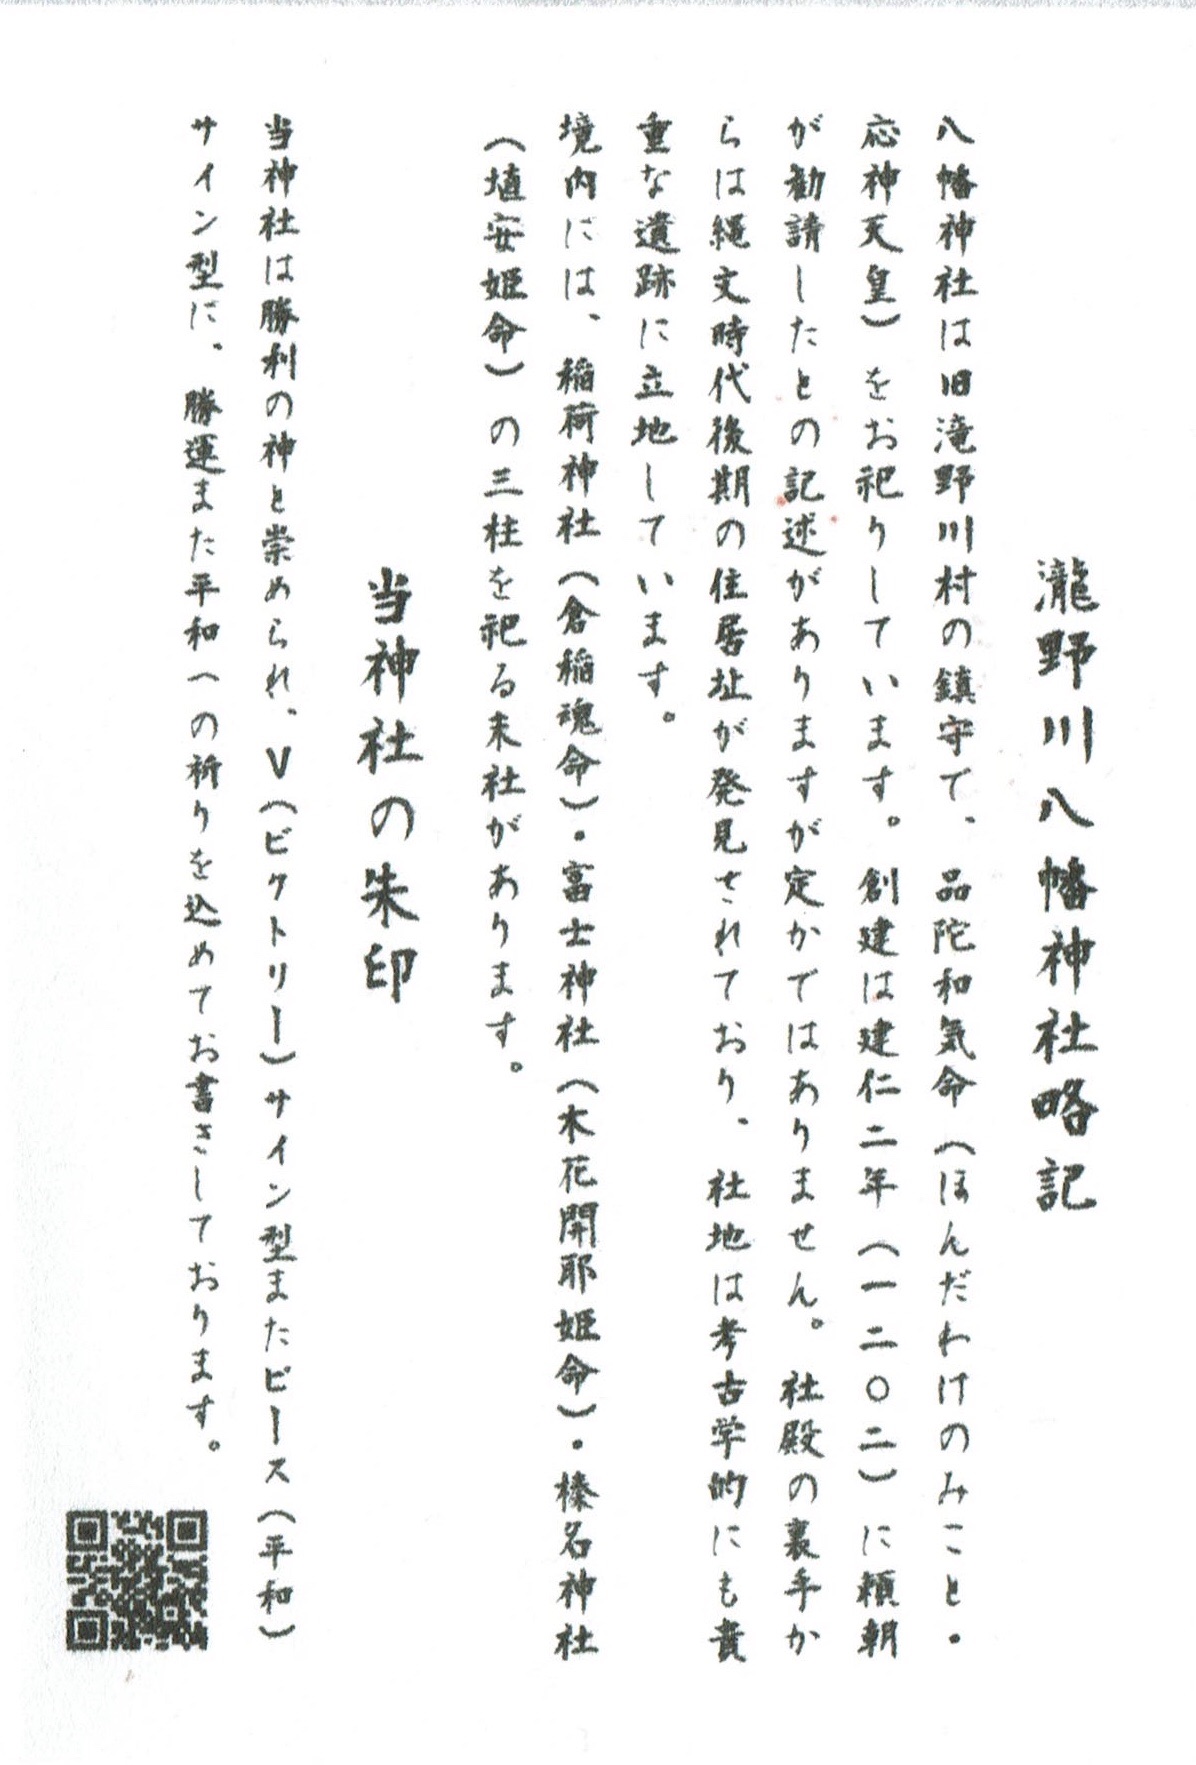 瀧野川八幡神社略記
八幡神社は旧滝野川村の鎮守で、品陀和気命（ほんだわけのみこと・
応神天皇）をお祀りしています。創建は建仁二年（一二〇二）に頼朝
が勧請したとの記述がありますが定かではありません。社殿の裏手か
らは縄文時代後期の住居址が発見されており、社地は考古学的にも貴
重な遺跡に立地しています。
境内には、稲荷神社（倉稲魂命）・富士神社（木花開耶姫命）・榛名神社
（埴安姫命）の三柱を祀る末社があります。
当神社の朱印
当神社は勝利の神と崇められ、V（ビクトリー）サイン型またピース（平和）
サイン型に、勝運また平和への祈りを込めてお書きしております。